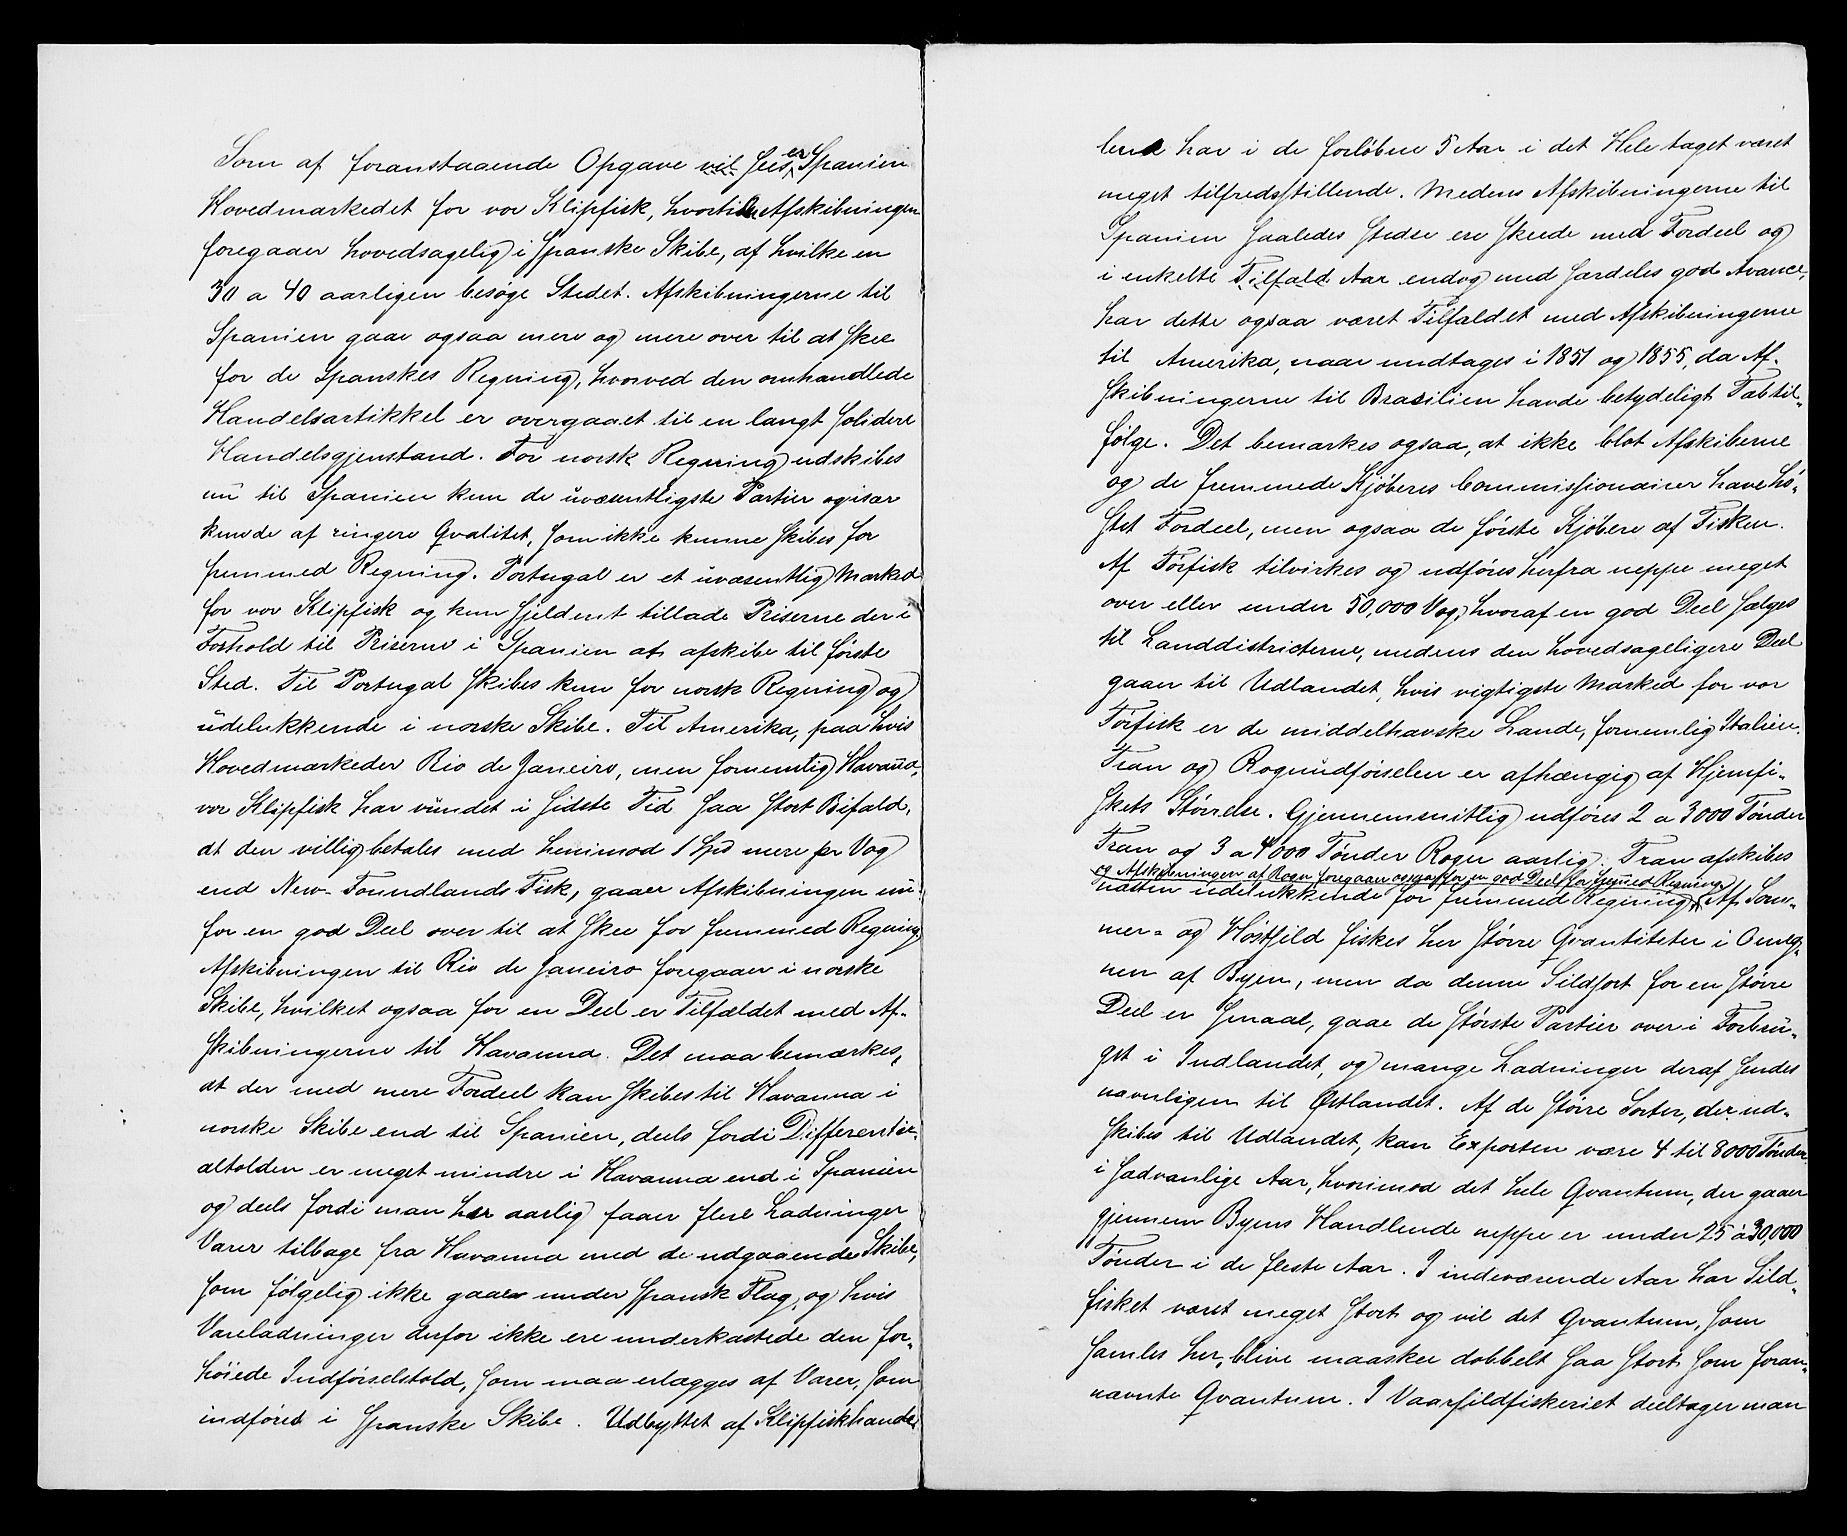 Som af foranstaaende Opgave vil sees er Spanien
Hovedmarkedet for vor Klipfisk, hvortil Afskibningen
foregaaer hovedsagelig i spanske Skibe, af hvilke en
30 a 40 aarligen besøge Stedet. Afskibningerne til
Spanien gaae ogsaa mere og mere over til at skee
for de Spanskes Regning, hvorved den omhandlede
Handelsartikkel er overgaaet til en langt solidere
Handelsgjenstand. For norsk Regning udskibes
nu til Spanien kun de uvæsentligste Partier og især
kunde af ringere Qvalitet, som ikke kunne skibes for
fremmed Regning. Portugal er et uvæsentlig Marked
for vor Klipfisk og kun sjeldent tillade Priserne der i
Forhold til Priserne i Spanien at afskibe til første
Sted. Til Portugal skibes kun for norsk Regning og
udelukkende i norske Skibe. Til Amerika, paa hvis
Hovedmarkeder Rio de Janeiro, men fornemlig Havana,
vor Klipfisk har vundet i sidste Tid saa stort Bifald,
at den villig betales med henimod 1 Spd mere pr Vog
end New-Foundlands Fisk, gaaer Afskibningen nu
for en god Deel over til at skee for fremmed Regning
Afskibningen til Rio de Janeiro foregaaer i norske
Skibe, hvilket ogsaa for en Deel er Tilfældet med Af-
skibningerne til Havanna. Det maa bemærkes,
at der med mere Fordeel kan skibes til Havanna i
norske Skibe end til Spanien, deels fordi Differentie-
altolden er meget mindre i Havanna end i Spanien
og deels fordi man her aarlig faaer flere Ladninger
Varer tilbage fra Havanna med de udgaaende Skibe,
som følgelig ikke gaaer under spansk Flag, og hvis
Vareladninger derfor ikke ere underkastede den for-
høiede Indførselstold, som maa erlægges af Varer, som
indføres i spanske Skibe. Udbyttet af Klipfiskhande
lend har i de forløbne 5 Aar i det Hele taget været
meget tilfredsstillende. Medens Afskibningerne til
Spanien saaledes stedse ere skeede med Fordeel og
i enkelte Tilfald Aar endog med særdeles god Avance,
har dette ogsaa været Tilfaldet med Afskibningerne
til Amerika, naar undtages i 1851 og 1855, da Af-
skibningerne til Brasilien havde betydeligt Tab til-
følge. Det bemærkes ogsaa, at ikke blot Afskiberne
og de fremmede Kjøberes Commissjonairer have hø-
stet Fordeel, men ogsaa de første Kjøbere af Fisken.
Af Tørfisk tilvirkes og udføres herfra neppe meget
over eller under 50,000 Vog, hvoraf en god Deel sælges
til Landdistricterne, medens den hovedsageligere Deel
gaaer til Udlandet, hvis vigtigste Marked for vor
Tørfisk er de middelhavske Lande, fornemlig Italien.
Tran og Rognudførselen er afhængig af Hjemfi-
skets Størrelse. Gjennemsnitlig udføres 2 a 3000 Tønder
Tran og 3 a 4000 Tønder Rogn aarlig. Tran afskibes
og Afskibningen af Rogn foregaaer ogsaa for en god Deel for fremmed Regning
næsten udelukkende for fremmed Regning. Af Som-
mer- og Høstsild fiskes her større Qvantiteter i Omeg-
nen af Byen, men da denne Sildsort for en større
Deel er smaae, gaae de største Partier over i Forbru-
get i Indlandet, og mange Ladninger deraf sendes
navnligen til Østlandet. Af de større Sorter, der ud-
skibes til Udlandet, kan Exporten være 4 til 8000 Tønder
i sædvanlige Aar, hvorimod det hele Qvantum, der gaaer
gjennem Byens Handlende neppe er under 25 à 30,000
Tønder i de fleste Aar. I indeværende Aar har Sild-
fisket været meget stort og vil det Qvantum, som
samles her, blive maaskee dobbelt saa stort som foran-
nævnte Qvantum. I Vaarsildfiskeriet deeltager man